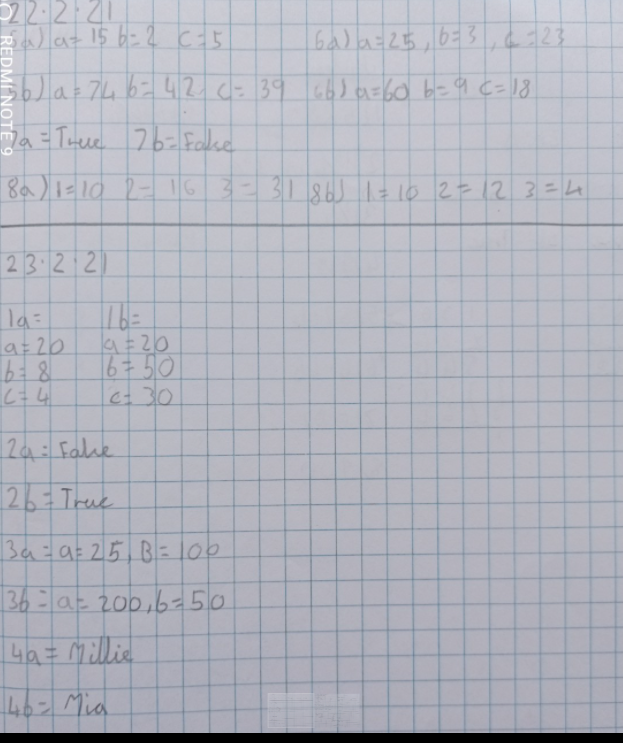 22.2.21
5a) a= 15 b=2 c=5 6a) a=25, b=3, c=23
5b) a=74 b=42 c=39 6b) a=60 b=9 c=18
7a = True 7b= False
8a) 1=10 2= 16 3=31 8b) 1=10 2=12 3=4
23.2.21
1a= 1b=
a=20 a=20
b=8 b=50
c=4 c=30
2a= False
2b= True
3a=a=25, B=100
3b=a=200, b=50
4a= Millie
4b= Mia
REDMI NOTE 9